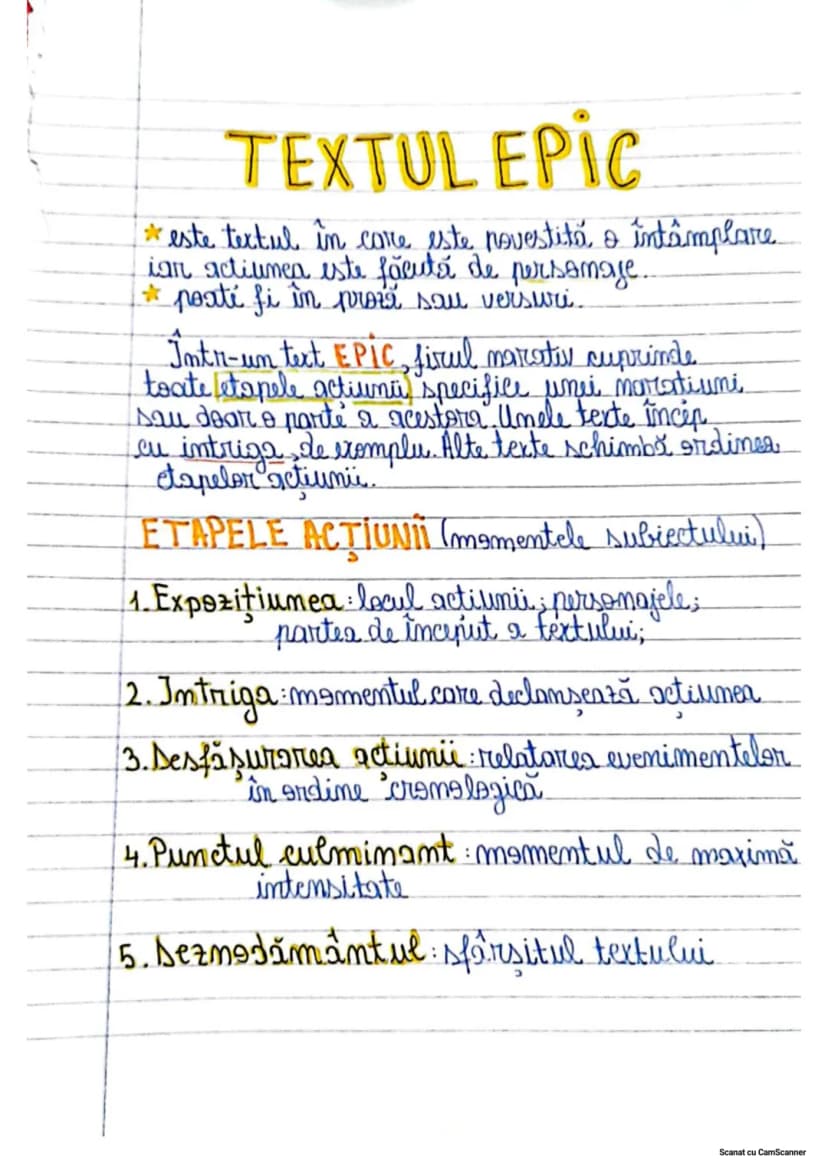 TEXTUL EPIC
* este textul în care este povestită o întâmplare
iar acțiunea este făcută de personaje.
* poate fi în proză sau versuri.
Într-un text EPIC, firul narativ cuprinde
toate etapele acțiunii specifice unei narațiuni
sau doar o parte a acestora. Unele texte încep
cu intriga, de exemplu. Alte texte schimbă ordinea
etapelor acțiunii.
ETAPELE ACȚIUNII (momentele subiectului)
1. Expozițiunea: locul acțiunii; personajele;
partea de început a textului;
2. Intriga: momentul care declanșează acțiunea
3. Desfășurarea acțiunii: relatarea evenimentelor
în ordine cronologică
4. Punctul culminant: momentul de maximă
intensitate
5. Deznodământul: sfârșitul textului
Scanat cu CamScanner